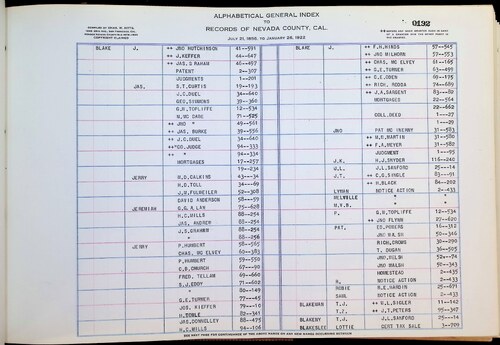 ALPHABETICAL GENERAL INDEX
TO
RECORDS OF NEVADA COUNTY, CAL.
JULY 21, 1855, TO JANUARY 28, 1922
0192
BLAKE J. ++ JNO HUTCHINSON 41--591
++ J.KEFFER 44--647
++ JAS. GRAHAM 46--497
PATENT 2--307
JUDGMENTS 1--201
JAS. S.T.CURTIS 19--193
J.C.DUEL 34--640
GEO.SIMMONS 39--360
G.H.TOPLIFFE 12--534
N.MC DADE 71--525
++ JNO " 49--561
++ JAS. BURKE 39--556
++ J.C.DUEL 34--640
++ GO.JUDGE 94--333
++ " 94--334
MORTGAGES 17--257
" 19--234
JERRY M.D.CALKINS 43--34
H.D.TOLL 34--69
J.U.FULWEILER 50--308
DAVID ANDERSON 58--59
JEREMIAH G.G.ALLAN 75--628
H.C.MILLS 88--254
JAS. ANDREW 88--254
J.S.GRAHAM 88--254
" 88--256
JERRY P.HUMBERT 58--565
CHAS. MC ELVEY 60--383
P.HUMBERT 59--550
C.B.CHURCH 67--90
FRED. TELLAM 69--660
S.J.EDDY 71--602
" 80--149
G.E.TURNER 77--45
JOS. KIEFFER 79--10
H.DOBLE 82--341
JAS.CONNOLLEY 88--475
H.C.MILLS 94--106
BLAKE J. ++ F.H.HINDS 57--545
++ JNO MILHORN 57--553
++ CHAS. MC ELVEY 61--165
++ G.E.TURNER 63--499
++ C.E.ODEN 69--175
++ RICH. RODDA 74--689
++ J.A.SARGENT 83--82
MORTGAGES 22--564
" 22--662
COLL.DEED 1--27
" 1--29
JNO PAT MC INERNY 31--583
++ M.H.MARTIN 31--508
++ F.A.MEYER 31--582
JUDGMENT 1--95
J.K. H.J.SNYDER 116--240
J.L. J.L.SANFORD 25--14
J.T. ++ C.G.SINGLE 83--91
++ H.BLACK 84--202
LYMAN NOTICE ACTION 2--433
MELVILLE " "
M.V.B. " "
P. G.H.TOPLIFFE 12--534
++ JNO FLYNN 27--620
PAT. ED.POWERS 16--312
JNO WALSH 50--346
RICH.CROWS 30--290
T. DUGAN 36--505
JNO.WELSH 52--74
JNO WALSH 52--343
HOMESTEAD 2--433
R. NOTICE ACTION 2--433
ROBIE R.E.HARDIN 25--671
SAML NOTICE ACTION 2--433
BLAKEMAN T.J. ++ W.L.SIGLER 11--142
T.J. ++ J.T.PETERS 95--347
BLAKENY T.J. J.L.SANFORD 25--14
BLAKESLEE LOTTIE CERT TAX SALE 3--709